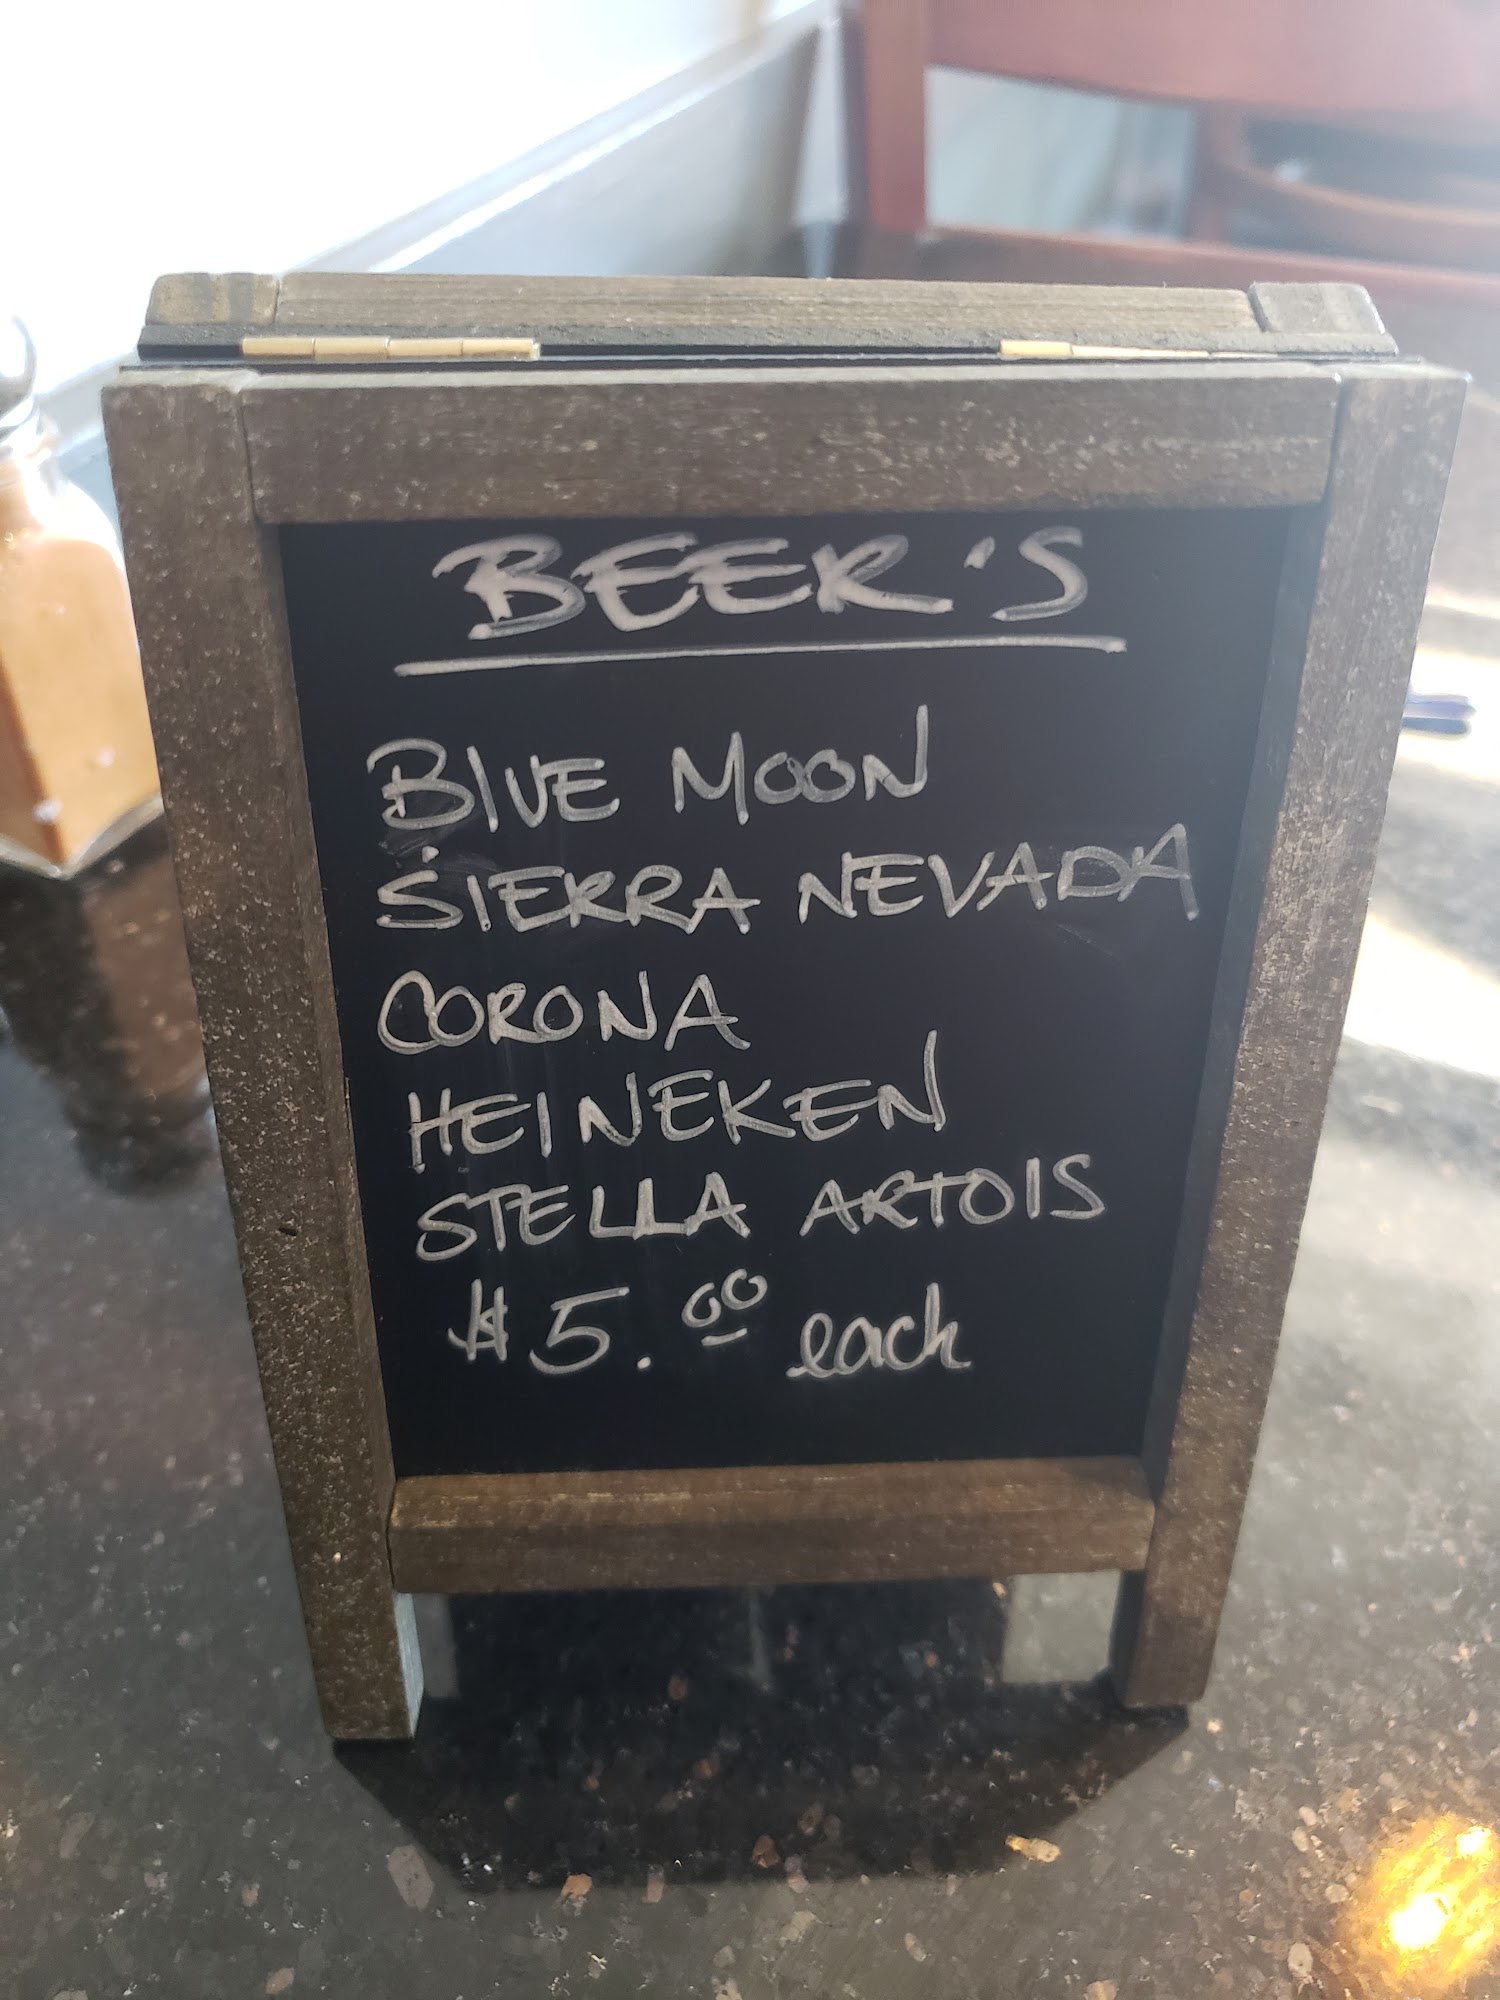 BEER'S
BLUE MOON
SIERRA NEVADA
CORONA
HEINEKEN
STELLA ARTOIS
$5.00 each